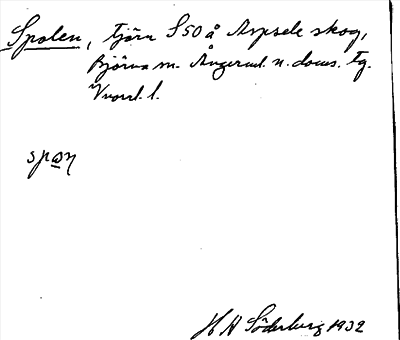 Spolen, tjärn S50 å Aspsele skog,
Björna sn. Ångerml. n. doms. tg.
Vnorrl. l.
spo̲ɳ
H A Söderberg 1932